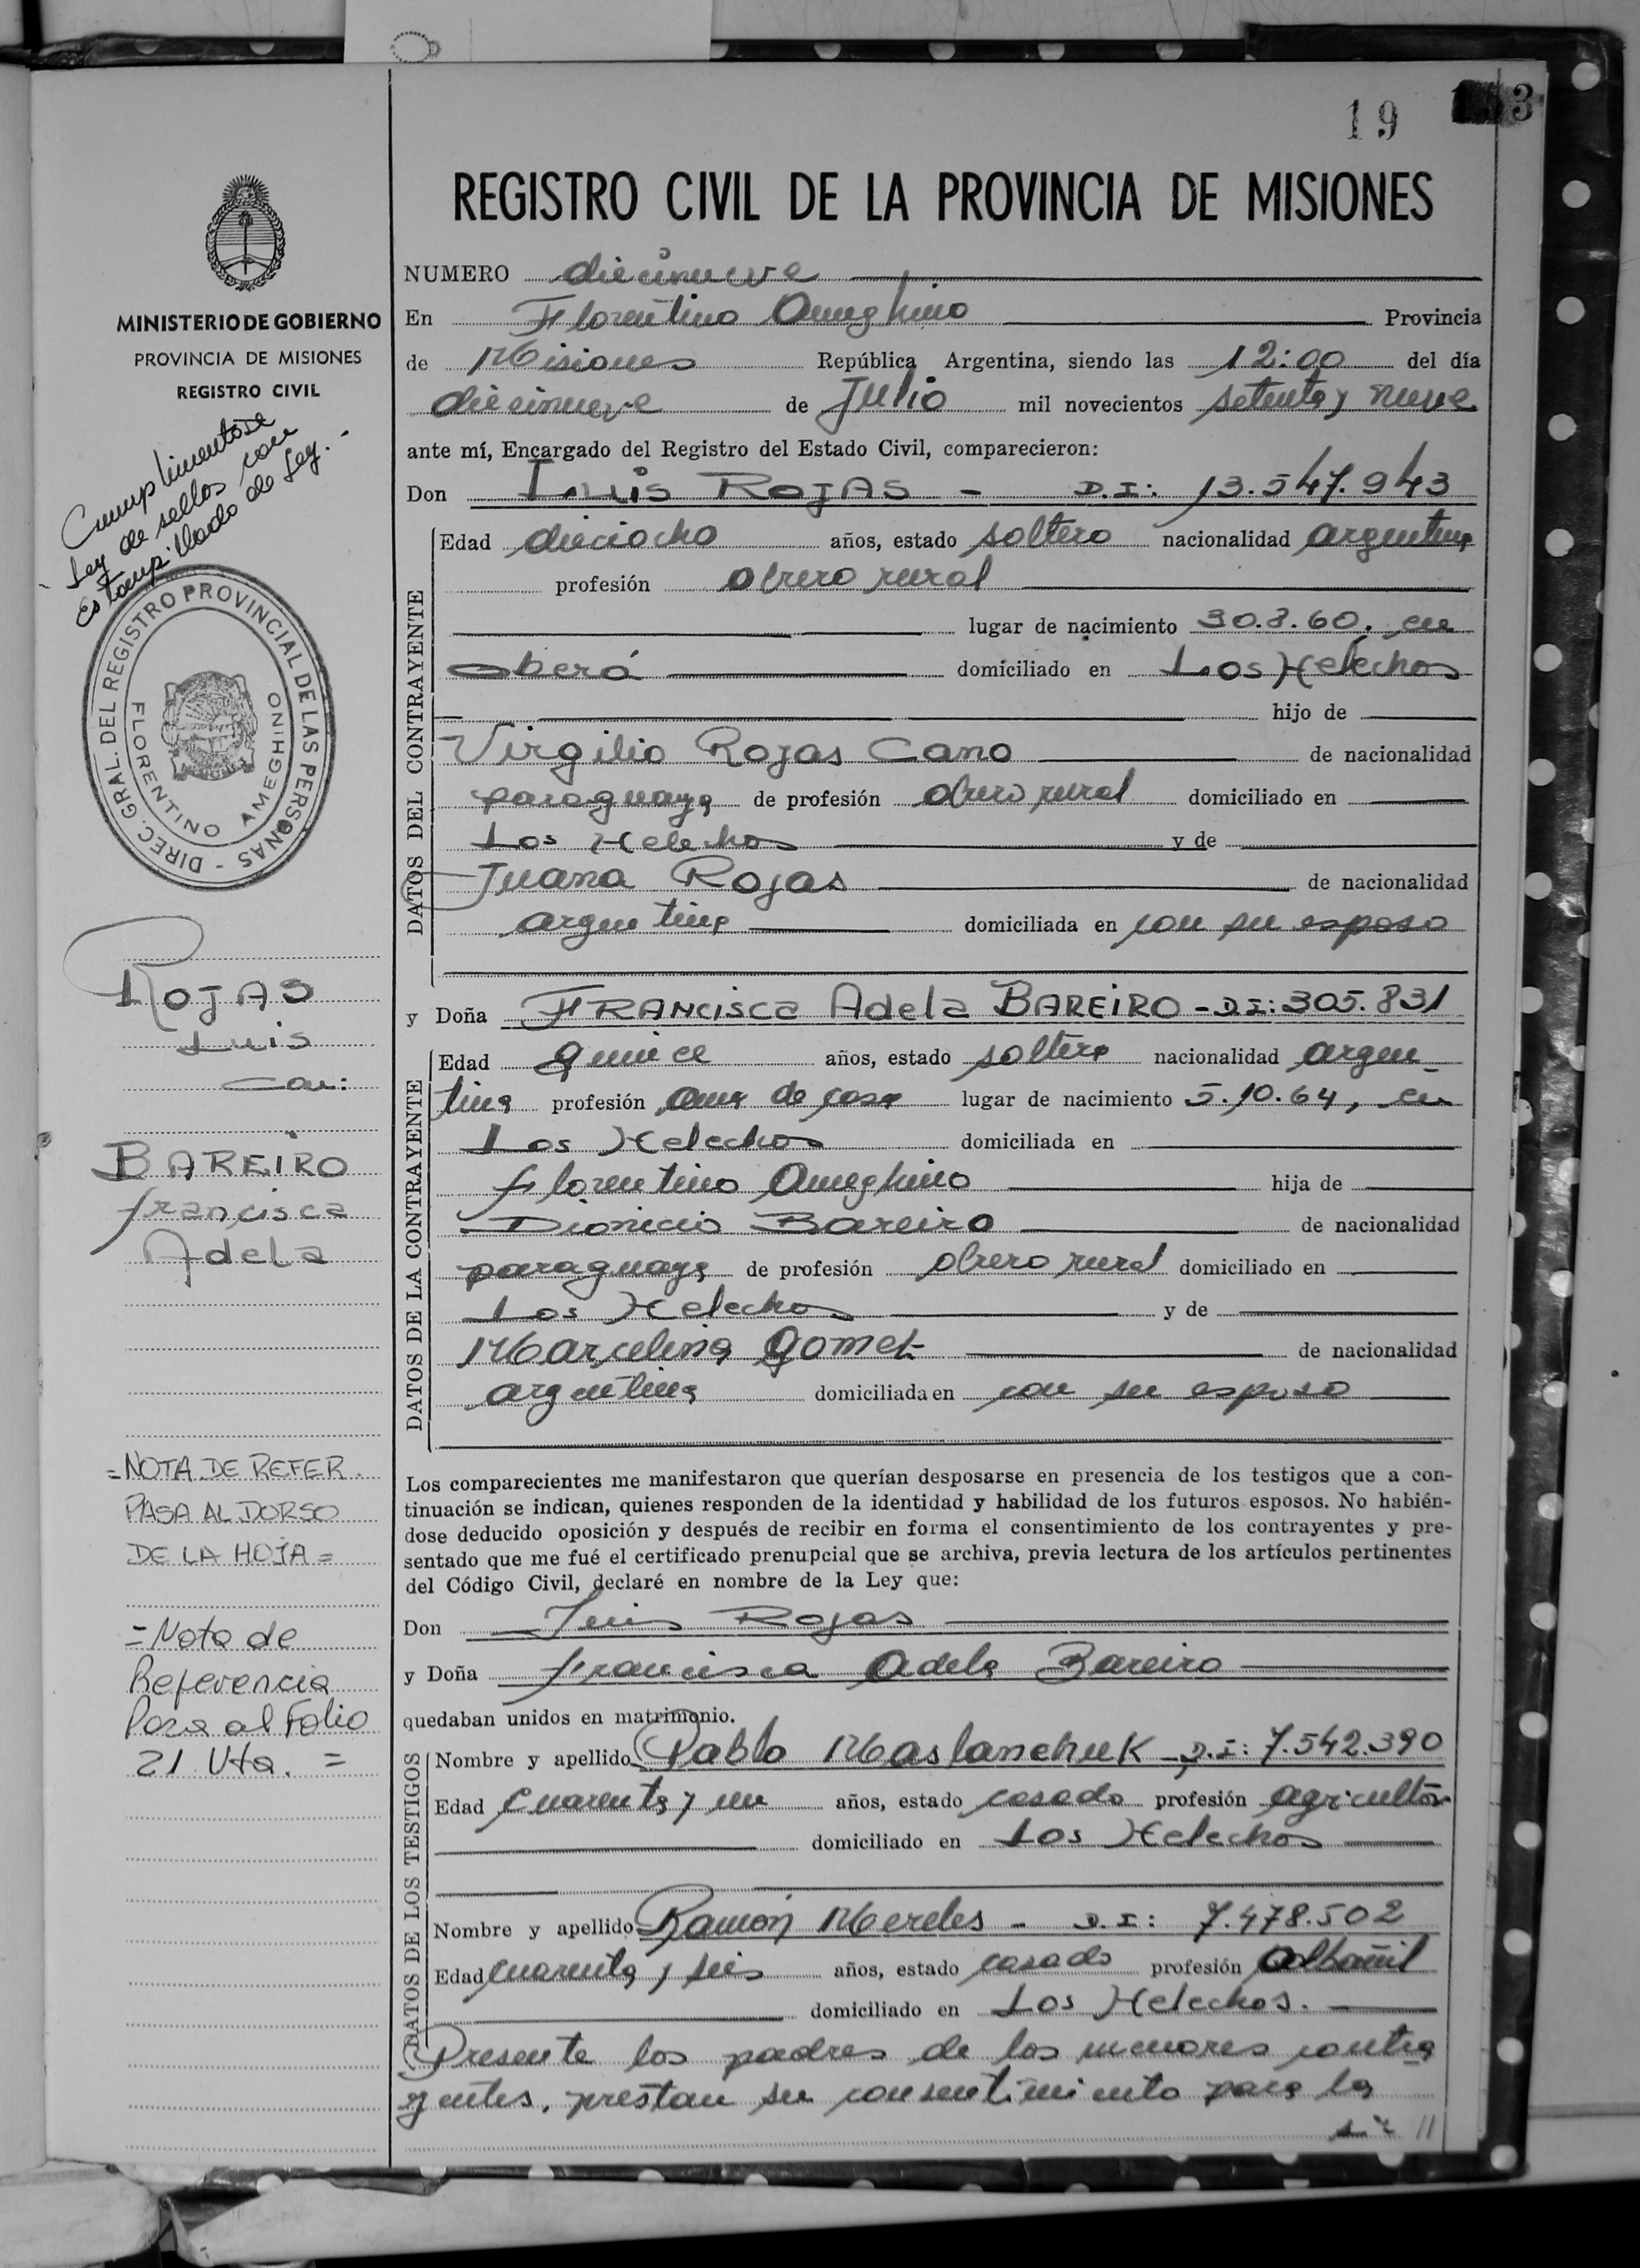 19
3
REGISTRO CIVIL DE LA PROVINCIA DE MISIONES
MINISTERIO DE GOBIERNO
PROVINCIA DE MISIONES
REGISTRO CIVIL
Cumplimentose
Ley de sellos con
Estampillado de Ley.-
DIREC. GRAL. DEL REGISTRO PROVINCIAL DE LAS PERSONAS -
FLORENTINO AMEGHINO
ROJAS
Luis
con:
BAREIRO
francisca
Adela
=NOTA DE REFER.
PASA AL DORSO
DE LA HOJA=
=Nota de
Referencia
Pasa al Folio
21 Vta. =
NUMERO diecinueve
En Florentino Ameghino Provincia
de Misiones República Argentina, siendo las 12:00 del día
diecinueve de Julio mil novecientos setenta y nueve
ante mí, Encargado del Registro del Estado Civil, comparecieron:
Don Luis ROJAS - D.I: 13.547.943
DATOS DEL CONTRAYENTE
Edad dieciocho años, estado soltero nacionalidad argentina
profesión obrero rural
lugar de nacimiento 30.8.60, en
Oberá domiciliado en Los Helechos
hijo de
Virgilio Rojas Cano de nacionalidad
paraguaya de profesión obrero rural domiciliado en
Los Helechos y de
Juana Rojas de nacionalidad
argentina domiciliada en con su esposo
y Doña FRANCISCA Adela BAREIRO - D.I: 305.831
DATOS DE LA CONTRAYENTE
Edad quince años, estado soltera nacionalidad argen-
tina profesión ama de casa lugar de nacimiento 5.10.64, en
Los Helechos domiciliada en
florentino Ameghino hija de
Dionicio Bareiro de nacionalidad
paraguaya de profesión obrero rural domiciliado en
Los Helechos y de
Marcelina Gomez de nacionalidad
argentina domiciliada en con su esposo
Los comparecientes me manifestaron que querían desposarse en presencia de los testigos que a con-
tinuación se indican, quienes responden de la identidad y habilidad de los futuros esposos. No habién-
dose deducido oposición y después de recibir en forma el consentimiento de los contrayentes y pre-
sentado que me fué el certificado prenupcial que se archiva, previa lectura de los artículos pertinentes
del Código Civil, declaré en nombre de la Ley que:
Don Luis Rojas
y Doña francisca Adela Bareiro
quedaban unidos en matrimonio.
DATOS DE LOS TESTIGOS
Nombre y apellido Pablo Maslanchuk - D.I: 7.542.390
Edad cuarenta y un años, estado casado profesión agricultor
domiciliado en Los Helechos
Nombre y apellido Ramón Mereles - D.I: 7.478.502
Edad cuarenta y seis años, estado casado profesión albañil
domiciliado en Los Helechos.
Presente los padres de los menores contra
yentes, prestan su consentimiento para la